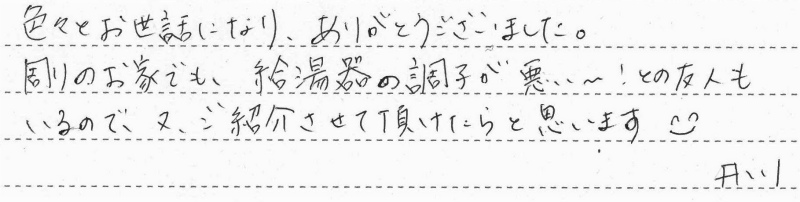 色々とお世話になり、ありがとうございました。
周りのお家でも、給湯器の調子が悪い〜!との友人も
いるので、又、ご紹介させて頂けたらと思います